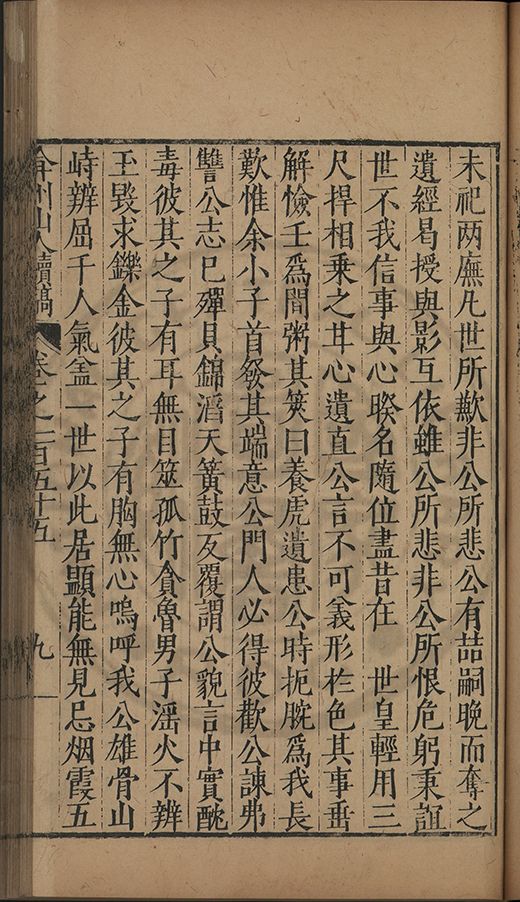 未祀两廡凡世所歉非公所悲公有喆嗣晚而奪之
遺經曷授與影互依雖公所悲非公所恨危躬秉誼
世不我信事與心暌名隨位盡昔在 世皇輕用三
尺捍相乗之甘心遺直公言不可義形於色其事乖
解憸壬爲間粥其筴曰養虎遺患公時扼腕爲我長
歎惟余小子首發其端意公門人必得彼歡公諫弗
讐公志巳殫貝錦滔天簧鼓反覆謂公貌言中實醜
毒彼其之子有耳無目筮孤竹貪魯男子滛火不辨
玉毀求鑠金彼其之子有胸無心嗚呼我公雄骨山
峙辨屈千人氣盖一世以此居顯能無見忌烟霞五
弇州山人續稿 卷之一百五十五 九